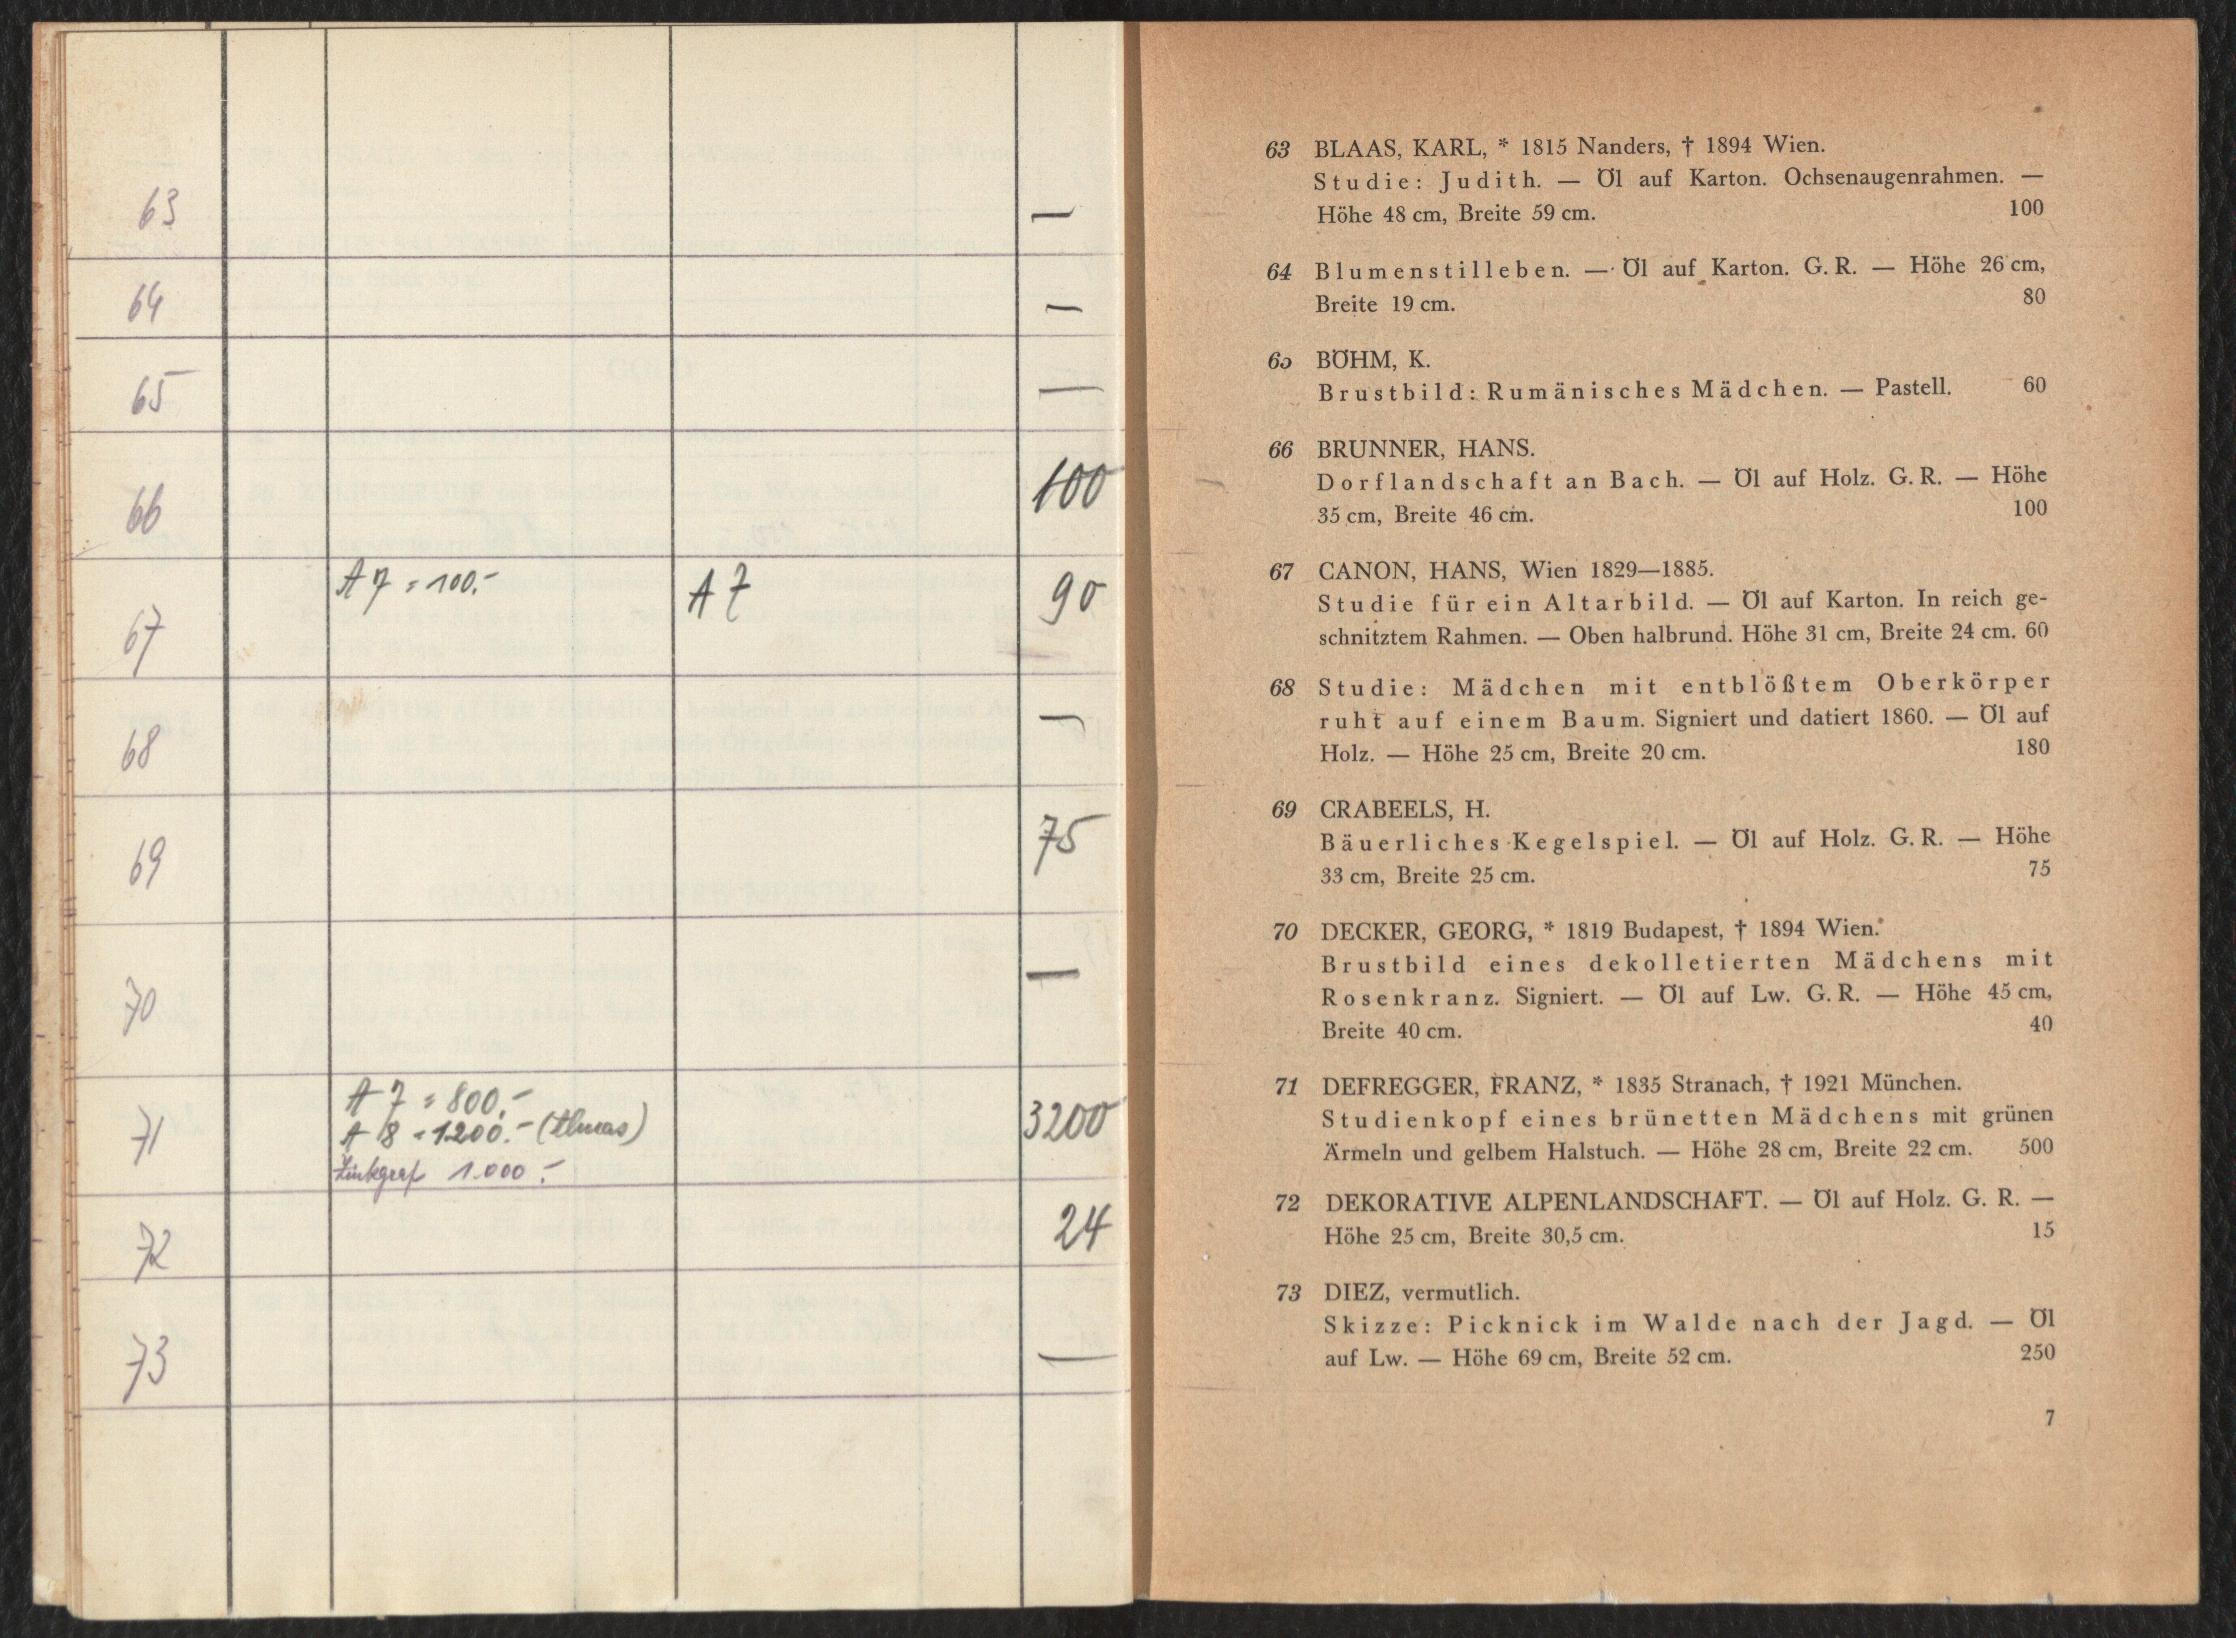 63 —
64 —
65 —
66 100
67 A 7 = 100.- A 7 90
68 —
69 75
70 —
71 A 7 = 800.- 3200
A 8 = 1200.-
1.000.-
72 24
73 —
63 BLAAS, KARL, * 1815 Nanders, † 1894 Wien.
Studie: Judith. — Öl auf Karton. Ochsenaugenrahmen. —
Höhe 48 cm, Breite 59 cm. 100
64 Blumenstilleben. — Öl auf Karton. G. R. — Höhe 26 cm,
Breite 19 cm. 80
65 BÖHM, K.
Brustbild: Rumänisches Mädchen. — Pastell. 60
66 BRUNNER, HANS.
Dorflandschaft an Bach. — Öl auf Holz. G. R. — Höhe
35 cm, Breite 46 cm. 100
67 CANON, HANS, Wien 1829—1885.
Studie für ein Altarbild. — Öl auf Karton. In reich ge-
schnitztem Rahmen. — Oben halbrund. Höhe 31 cm, Breite 24 cm. 60
68 Studie: Mädchen mit entblößtem Oberkörper
ruht auf einem Baum. Signiert und datiert 1860. — Öl auf
Holz. — Höhe 25 cm, Breite 20 cm. 180
69 CRABEELS, H.
Bäuerliches Kegelspiel. — Öl auf Holz. G. R. — Höhe
33 cm, Breite 25 cm. 75
70 DECKER, GEORG, * 1819 Budapest, † 1894 Wien.
Brustbild eines dekolletierten Mädchens mit
Rosenkranz. Signiert. — Öl auf Lw. G. R. — Höhe 45 cm,
Breite 40 cm. 40
71 DEFREGGER, FRANZ, * 1835 Stranach, † 1921 München.
Studienkopf eines brünetten Mädchens mit grünen
Ärmeln und gelbem Halstuch. — Höhe 28 cm, Breite 22 cm. 500
72 DEKORATIVE ALPENLANDSCHAFT. — Öl auf Holz. G. R. —
Höhe 25 cm, Breite 30,5 cm. 15
73 DIEZ, vermutlich.
Skizze: Picknick im Walde nach der Jagd. — Öl
auf Lw. — Höhe 69 cm, Breite 52 cm. 250
7